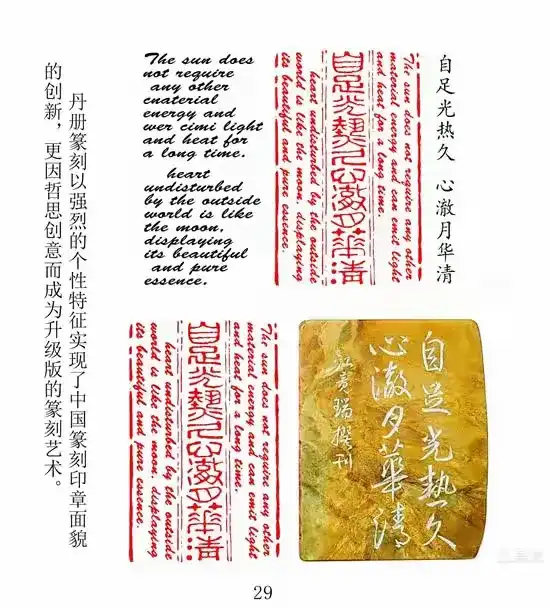 The sun does
not require
any other
cnaterial
energy and
wer cimi light
and heat for
a long time.
heart
undisturbed
by the outside
world is like
the moon,
displaying
its beautiful
and pure
essence.
The sun does not require any other
material energy and can emit light
and heat for a long time.
自足光热久心澈月华清
heart undisturbed by the outside
world is like the moon, displaying
its beautiful and pure essence.
自足光热久 心澈月华清
丹册篆刻以强烈的个性特征实现了中国篆刻印章面貌
的创新，更因哲思创意而成为升级版的篆刻艺术。
The sun does not require any other
material energy and can emit light
and heat for a long time.
自足光热久心澈月华清
heart undisturbed by the outside
world is like the moon, displaying
its beautiful and pure essence.
自足光热久
心澈月華清
29